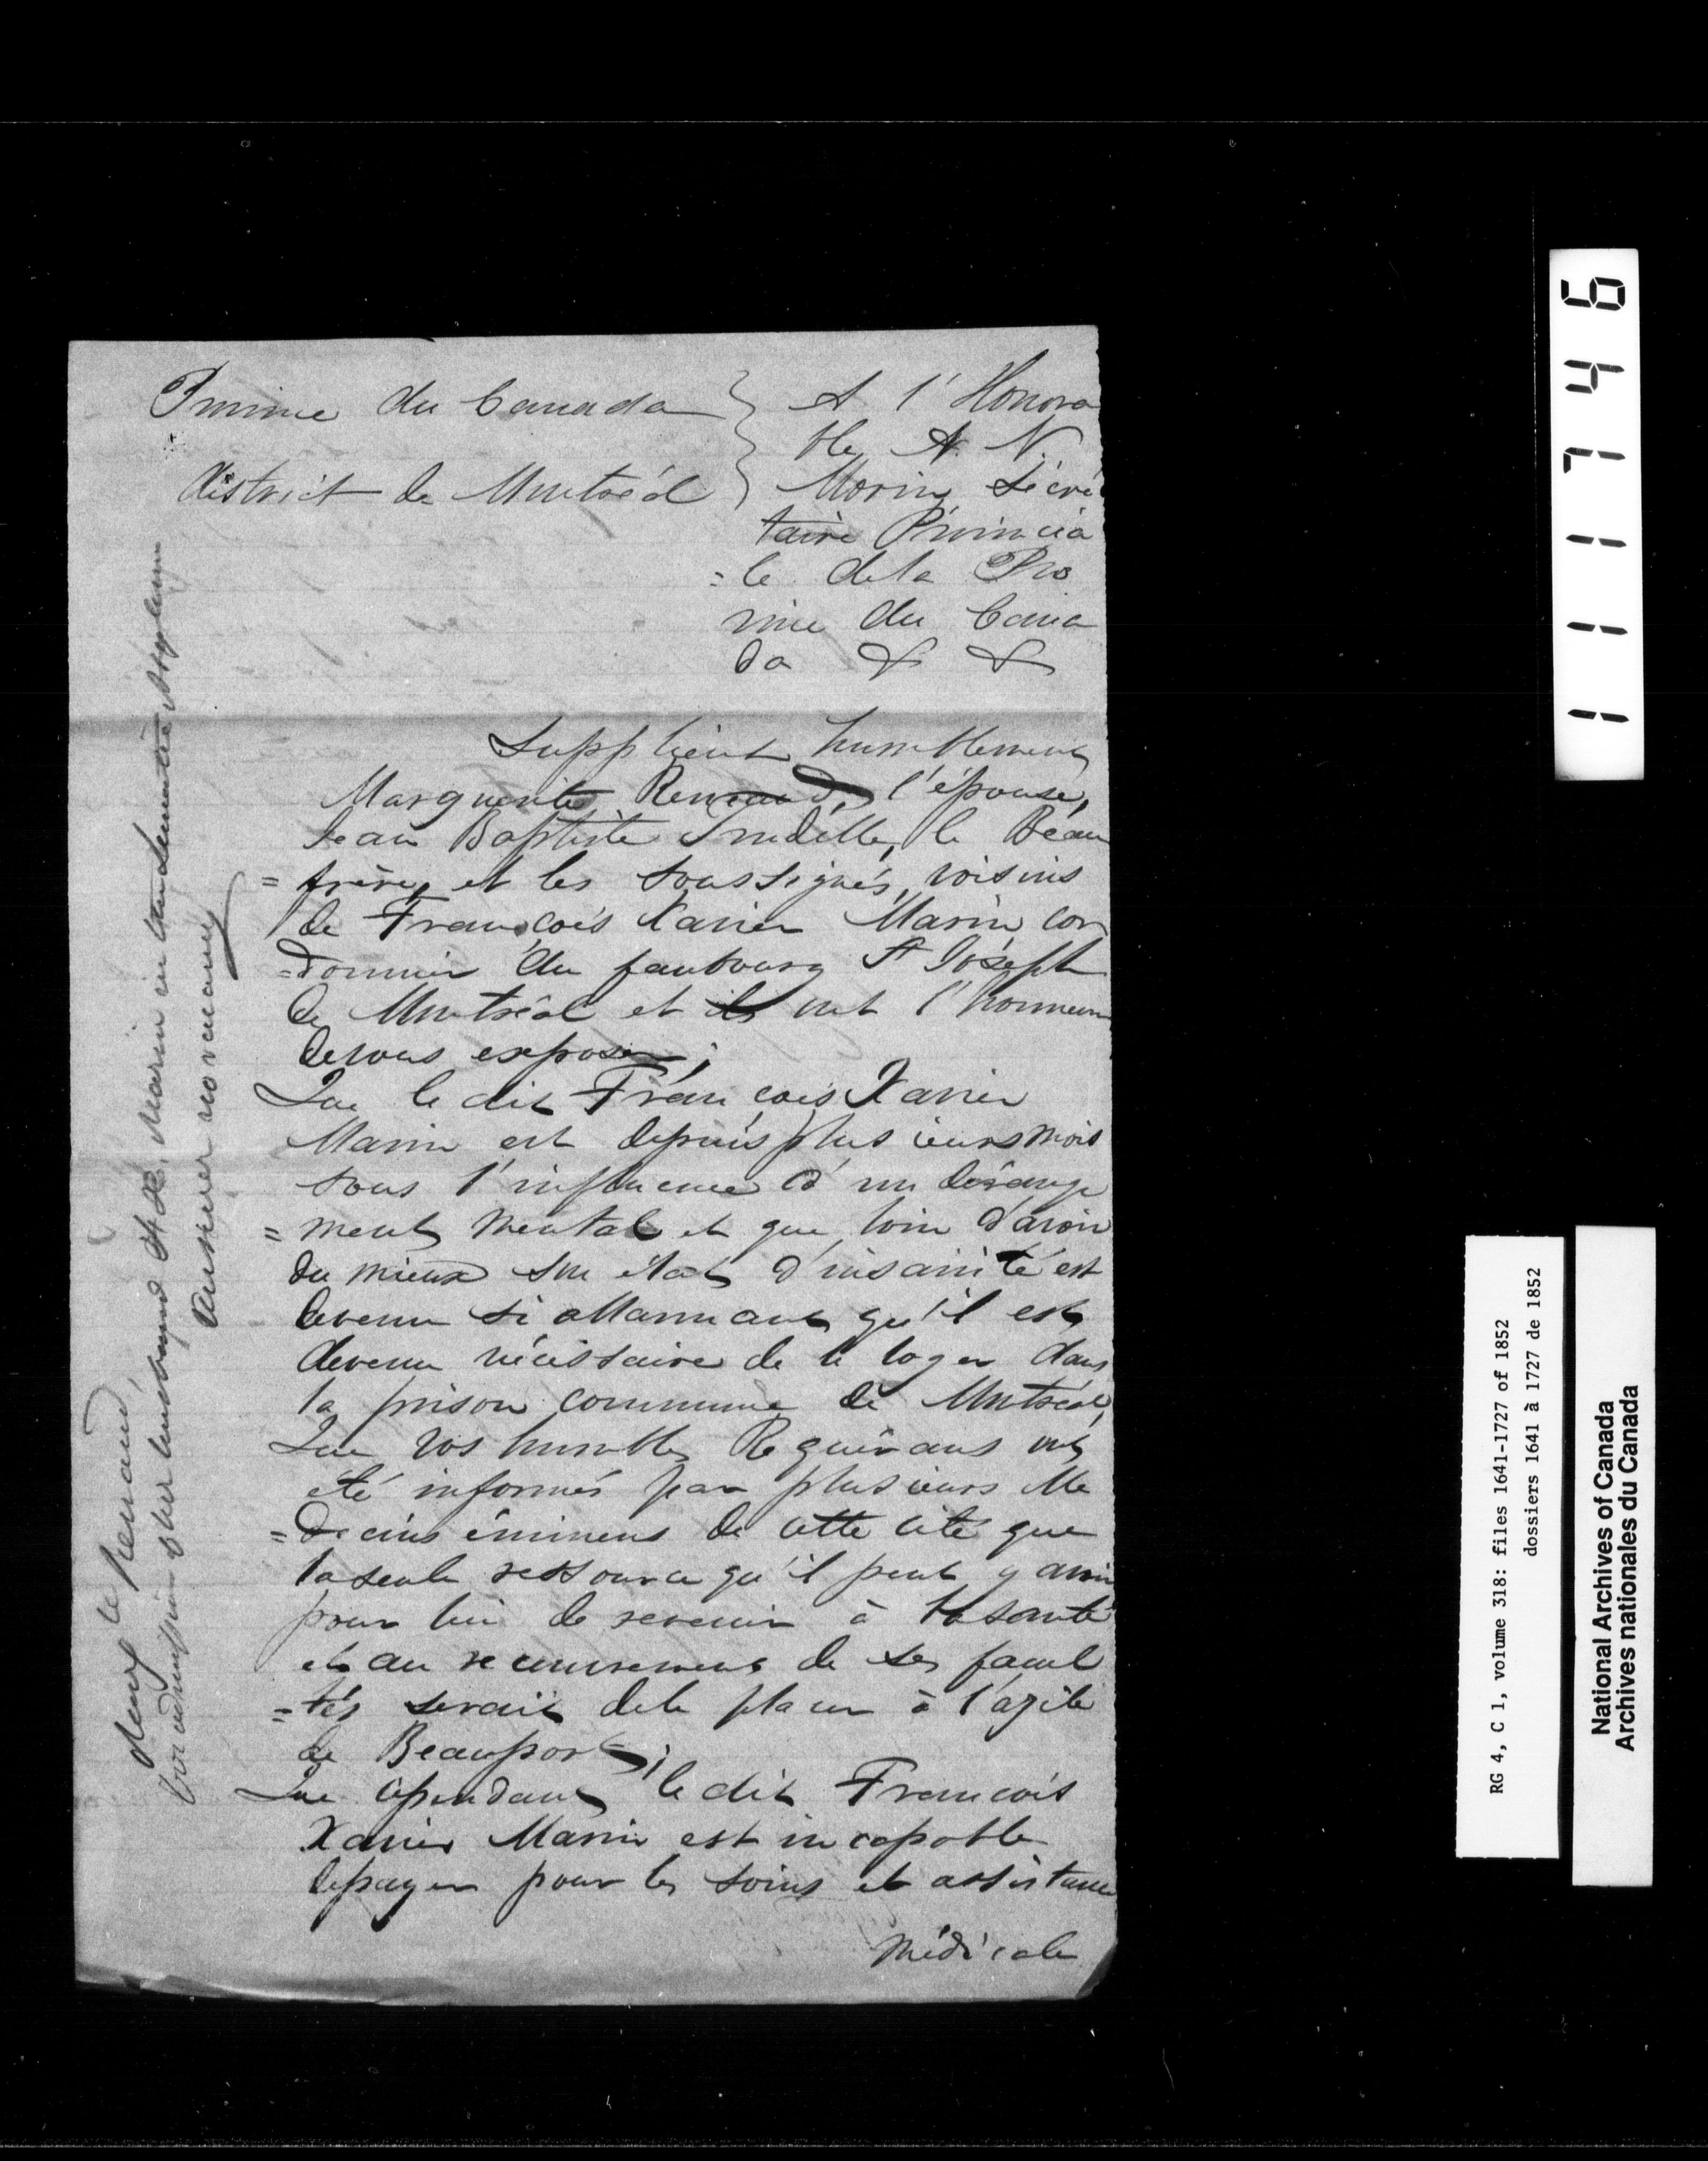 Province du Canada
District de Montréal
A l'Honora
ble A. N.
Morin Sécré
taire Provincia
=le de la Pro
vince du Cana
da & &
Supplient humblement
Marguerite Renaud, l'épouse,
Jean Baptiste Trudelle, le Beau
=frère, et les soussignés, voisins
de François Xavier Marin cor
=donnier du faubourg St Joséph
de Montréal et ils ont l'honneur
de vous exposer;
Que le dit François Xavier
Marin est depuis plusieurs mois
sous l'influence d'un dérange
=ment mental et que loin d'avoir
du mieux son état d'insanité est
devenu si allarmant qu'il est
devenu nécessaire de le loger dans
la prison commune de Montréal,
Que vos humbles Requérans ont
été informés par plusieurs Mé
=decins éminens de cette cité que
la seule ressource qu'il peut y avoir
pour lui de revenir à la santé
et au recouvrement de ses facul
=tés serait de le placer à l'azile
de Beauport;
Que cependant le dit François
Xavier Marin est incapable
de payer pour les soins et assistance
Médicale
Marg te Renaud,
for admission of her husband F. X. Marin in the Lunatic Asylum
Answer no vacancy
111746
RG 4, C 1, volume 318: files 1641-1727 of 1852
dossiers 1641 à 1727 de 1852
National Archives of Canada
Archives nationales du Canada